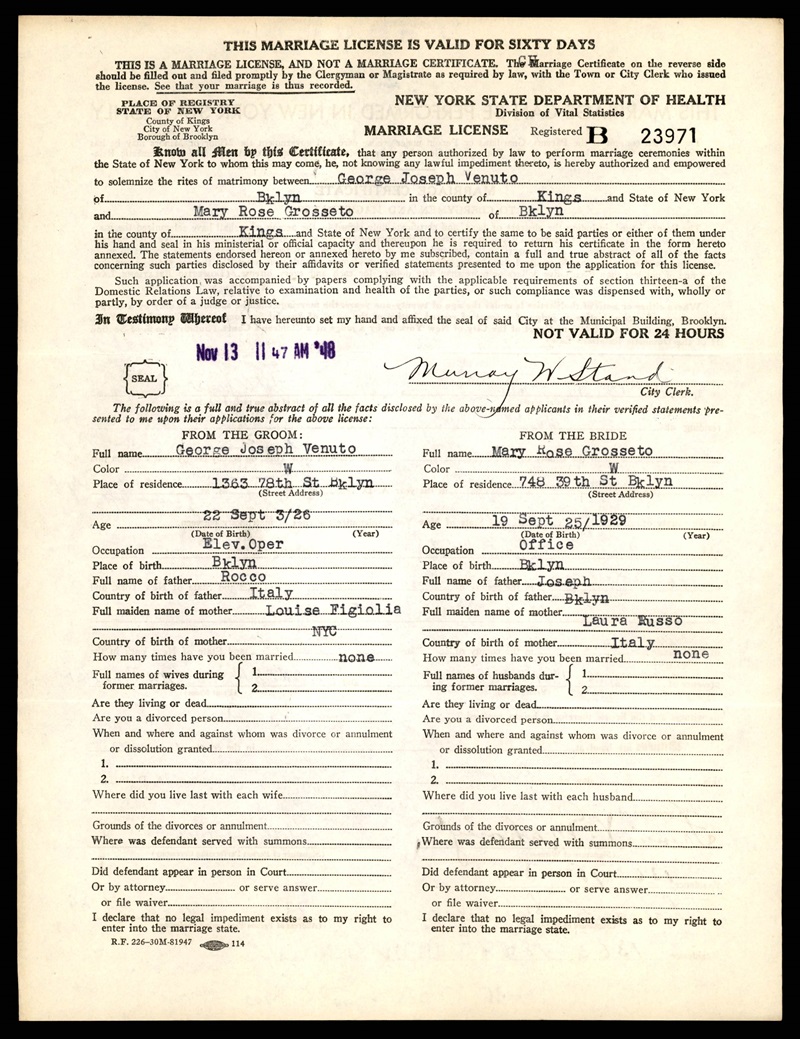 THIS MARRIAGE LICENSE IS VALID FOR SIXTY DAYS
THIS IS A MARRIAGE LICENSE, AND NOT A MARRIAGE CERTIFICATE. The Marriage Certificate on the reverse side
should be filled out and filed promptly by the Clergyman or Magistrate as required by law, with the Town or City Clerk who issued
the license. See that your marriage is thus recorded.
PLACE OF REGISTRY
STATE OF NEW YORK
County of Kings
City of New York
Borough of Brooklyn
NEW YORK STATE DEPARTMENT OF HEALTH
Division of Vital Statistics
MARRIAGE LICENSE Registered B 23971
Know all Men by this Certificate, that any person authorized by law to perform marriage ceremonies within
the State of New York to whom this may come, he, not knowing any lawful impediment thereto, is hereby authorized and empowered
to solemnize the rites of matrimony between George Joseph Venuto
of Bklyn in the county of Kings and State of New York
and Mary Rose Grosseto of Bklyn
in the county of Kings and State of New York and to certify the same to be said parties or either of them under
his hand and seal in his ministerial or official capacity and thereupon he is required to return his certificate in the form hereto
annexed. The statements endorsed hereon or annexed hereto by me subscribed, contain a full and true abstract of all of the facts
concerning such parties disclosed by their affidavits or verified statements presented to me upon the application for this license.
Such application was accompanied by papers complying with the applicable requirements of section thirteen-a of the
Domestic Relations Law, relative to examination and health of the parties, or such compliance was dispensed with, wholly or
partly, by order of a judge or justice.
In Testimony Whereof I have hereunto set my hand and affixed the seal of said City at the Municipal Building, Brooklyn.
NOT VALID FOR 24 HOURS
Nov 13 11 47 AM '48
SEAL
Murray W Stand
City Clerk.
The following is a full and true abstract of all the facts disclosed by the above-named applicants in their verified statements pre-
sented to me upon their applications for the above license:
FROM THE GROOM:
Full name George Joseph Venuto
Color W
Place of residence 1363 78th St Bklyn
(Street Address)
Age 22 Sept 3/26
(Date of Birth) (Year)
Occupation Elev.Oper
Place of birth Bklyn
Full name of father Rocco
Country of birth of father Italy
Full maiden name of mother Louise Figiolia
Country of birth of mother NYC
How many times have you been married none
Full names of wives during 1
former marriages. 2
Are they living or dead
Are you a divorced person
When and where and against whom was divorce or annulment
or dissolution granted
1.
2.
Where did you live last with each wife
Grounds of the divorces or annulment
Where was defendant served with summons
Did defendant appear in person in Court
Or by attorney or serve answer
or file waiver
I declare that no legal impediment exists as to my right to
enter into the marriage state.
R.F. 226-30M-81947 114
FROM THE BRIDE
Full name Mary Rose Grosseto
Color W
Place of residence 748 39th St Bklyn
(Street Address)
Age 19 Sept 25/1929
(Date of Birth) (Year)
Occupation Office
Place of birth Bklyn
Full name of father Joseph
Country of birth of father Bklyn
Full maiden name of mother
Laura Russo
Country of birth of mother Italy
How many times have you been married none
Full names of husbands dur- 1
ing former marriages. 2
Are they living or dead
Are you a divorced person
When and where and against whom was divorce or annulment
or dissolution granted
1.
2.
Where did you live last with each husband
Grounds of the divorces or annulment
Where was defendant served with summons
Did defendant appear in person in Court
Or by attorney or serve answer
or file waiver
I declare that no legal impediment exists as to my right to
enter into the marriage state.